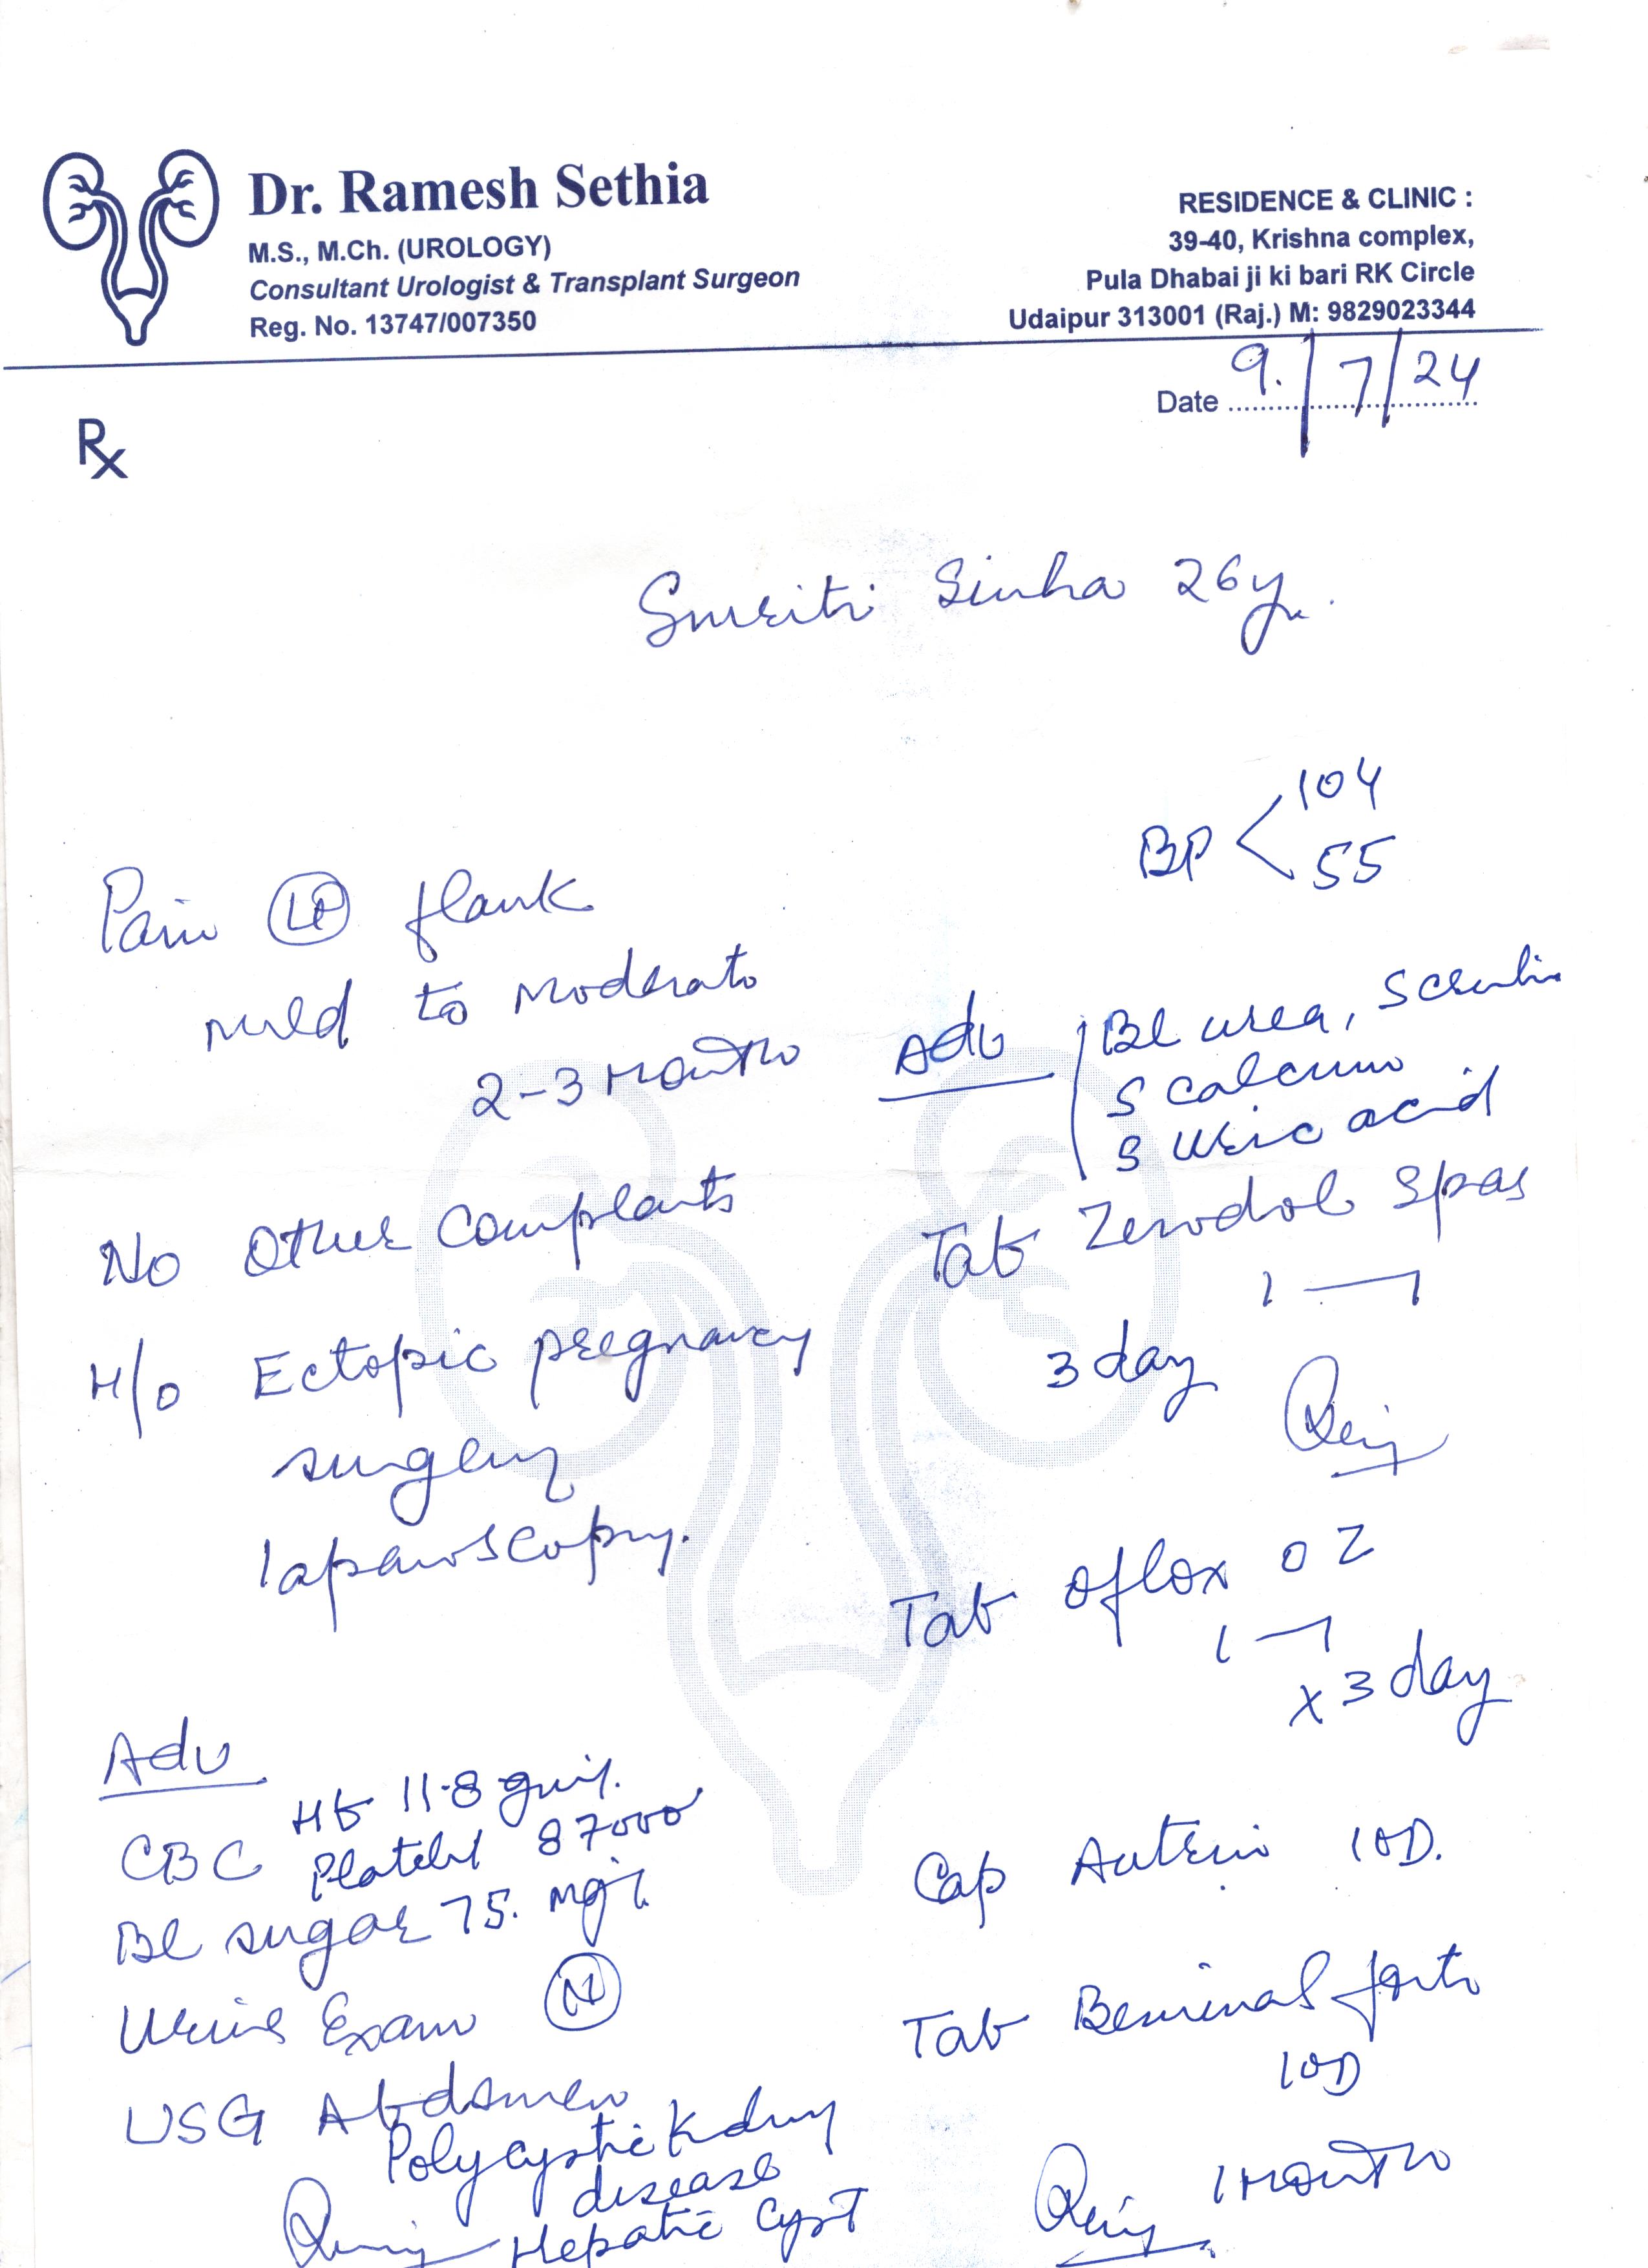 Dr. Ramesh Sethia
M.S., M.Ch. (UROLOGY)
Consultant Urologist & Transplant Surgeon
Reg. No. 13747/007350
RESIDENCE & CLINIC :
39-40, Krishna complex,
Pula Dhabai ji ki bari RK Circle
Udaipur 313001 (Raj.) M: 9829023344
Date 9/7/24
Rx
Smriti Sinha 26y
BP < 104
55
Pain Lt flank
mild to moderate
2-3 Months
No Other Complaints
H/o Ectopic pregnancy
surgery
laparoscopy.
Adv
CBC Hb 11.8 gm%
Platelet 87000
Bl sugar 75. mg%
Urine Exam N
USG Abdomen
Polycystic Kidney
disease
Hepatic Cyst
Adv
Bl urea, S
S calcium
S Uric acid
Tab Zerodol Spas
1 — 1
3 day
Tab Oflox OZ
1 — 1
x 3 day
Cap 1OD.
Tab Beminal forte
1OD
1 Month